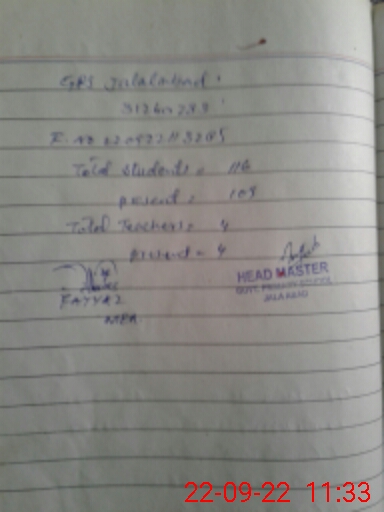 GPS Jalalabad
Total students = 116
present = 109
Total Teachers = 4
present = 4
FAYYAZ
MEA
HEAD MASTER
GOVT. PRIMARY SCHOOL
JALALABAD
22-09-22 11:33